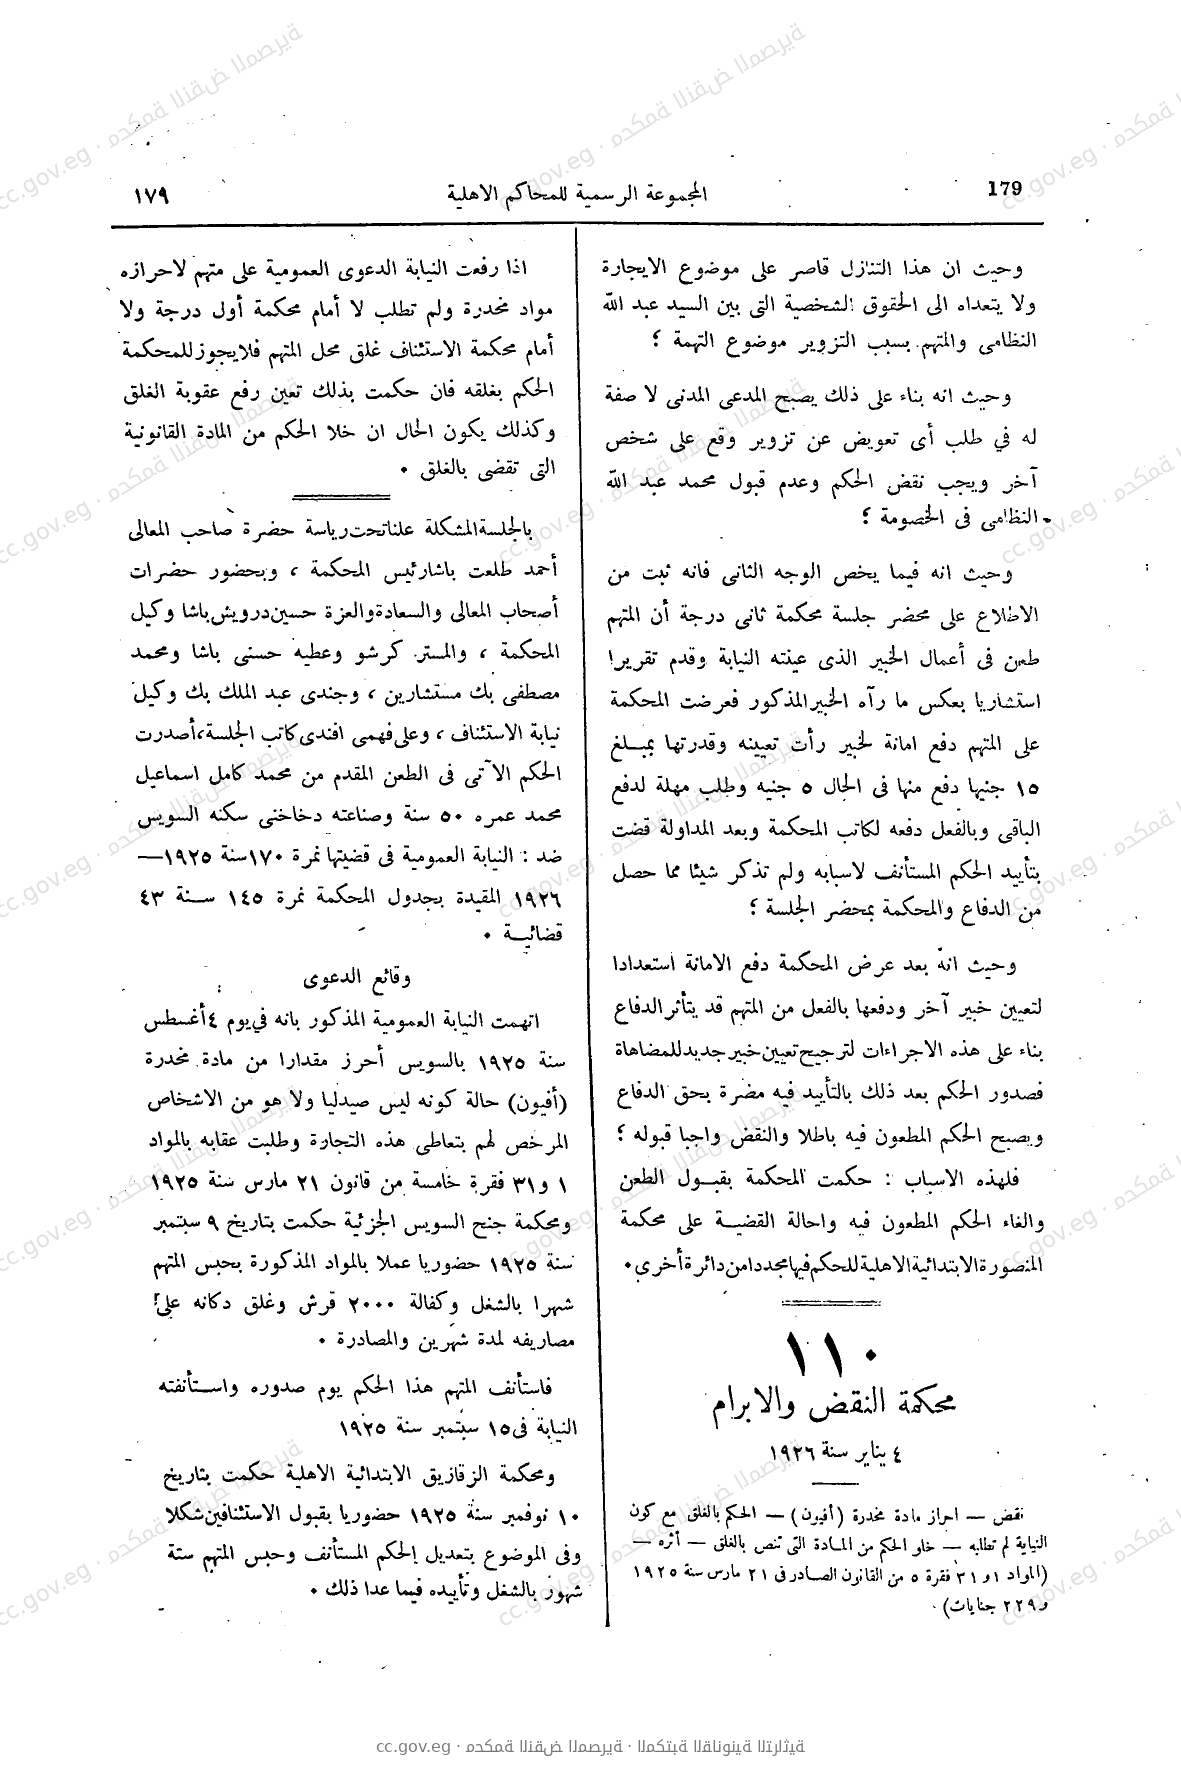 179
المجموعة الرسمية للمحاكم الاهلية
١٧٩
وحيث ان هذا التنازل قاصر على موضوع الايجارة
ولا يتعداه الى الحقوق الشخصية التى بين السيد عبد الله
النظامى والمتهم بسبب التزوير موضوع التهمة ؛
وحيث انه بناء على ذلك يصبح المدعى المدنى لا صفة
له في طلب أى تعويض عن تزوير وقع على شخص
آخر ويجب نقض الحكم وعدم قبول محمد عبد الله
النظامى فى الخصومة ؛
وحيث انه فيما يخص الوجه الثانى فانه ثبت من
الاطلاع على محضر جلسة محكمة ثانى درجة أن المتهم
طعن فى أعمال الخبير الذى عينته النيابة وقدم تقريرا
استشاريا بعكس ما رآه الخبير المذكور فعرضت المحكمة
على المتهم دفع امانة لخبير رأت تعيينه وقدرتها بمبلغ
١٥ جنيها دفع منها فى الحال ٥ جنيه وطلب مهلة لدفع
الباقى وبالفعل دفعه لكاتب المحكمة وبعد المداولة قضت
بتأييد الحكم المستأنف لاسبابه ولم تذكر شيئا مما حصل
من الدفاع والمحكمة بمحضر الجلسة ؛
وحيث انه بعد عرض المحكمة دفع الامانة استعدادا
لتعيين خبير آخر ودفعها بالفعل من المتهم قد يتأثر الدفاع
بناء على هذه الاجراءات لترجيح تعيين خبير جديد للمضاهاة
فصدور الحكم بعد ذلك بالتأييد فيه مضرة بحق الدفاع
ويصبح الحكم المطعون فيه باطلا والنقض واجبا قبوله ؛
فلهذه الاسباب : حكمت المحكمة بقبول الطعن
والغاء الحكم المطعون فيه واحالة القضية على محكمة
المنصورة الابتدائية الاهلية للحكم فيها مجددا من دائرة أخرى .
١١٠
محكمة النقض والابرام
٤ يناير سنة ١٩٢٦
نقض — احراز مادة مخدرة (أفيون) — الحكم بالغلق مع كون
النيابة لم تطلبه — خلو الحكم من المادة التى تنص بالغلق — أثره —
(المواد ١ و ٣١ فقرة ٥ من القانون الصادر فى ٢١ مارس سنة ١٩٢٥
و ٢٢٩ جنايات) .
اذا رفعت النيابة الدعوى العمومية على متهم لاحرازه
مواد مخدرة ولم تطلب لا أمام محكمة أول درجة ولا
أمام محكمة الاستئناف غلق محل المتهم فلا يجوز للمحكمة
الحكم بغلقه فان حكمت بذلك تعين رفع عقوبة الغلق
وكذلك يكون الحال ان خلا الحكم من المادة القانونية
التى تقضى بالغلق .
بالجلسة المشكلة علنا تحت رياسة حضرة صاحب المعالى
أحمد طلعت باشا رئيس المحكمة ، وبحضور حضرات
أصحاب المعالى والسعادة والعزة حسين درويش باشا وكيل
المحكمة ، والمستر كرشو وعطيه حسنى باشا ومحمد
مصطفى بك مستشارين ، وجندى عبد الملك بك وكيل
نيابة الاستئناف ، وعلى فهمى افندى كاتب الجلسة ، أصدرت
الحكم الآتى فى الطعن المقدم من محمد كامل اسماعيل
محمد عمره ٥٠ سنة وصناعته دخاخنى سكنه السويس
ضد : النيابة العمومية فى قضيتها نمرة ١٧٠ سنة ١٩٢٥—
١٩٢٦ المقيدة بجدول المحكمة نمرة ١٤٥ سنة ٤٣
قضائية .
وقائع الدعوى
اتهمت النيابة العمومية المذكور بانه في يوم ٤ أغسطس
سنة ١٩٢٥ بالسويس أحرز مقدارا من مادة مخدرة
(أفيون) حالة كونه ليس صيدليا ولا هو من الاشخاص
المرخص لهم بتعاطى هذه التجارة وطلبت عقابه بالمواد
١ و ٣١ فقرة خامسة من قانون ٢١ مارس سنة ١٩٢٥
ومحكمة جنح السويس الجزئية حكمت بتاريخ ٩ سبتمبر
سنة ١٩٢٥ حضوريا عملا بالمواد المذكورة بحبس المتهم
شهرا بالشغل وكفالة ٢٠٠٠ قرش وغلق دكانه على
مصاريفه لمدة شهرين والمصادرة .
فاستأنف المتهم هذا الحكم يوم صدوره واستأنفته
النيابة فى ١٥ سبتمبر سنة ١٩٢٥
ومحكمة الزقازيق الابتدائية الاهلية حكمت بتاريخ
١٠ نوفمبر سنة ١٩٢٥ حضوريا بقبول الاستئنافين شكلا
وفى الموضوع بتعديل الحكم المستأنف وحبس المتهم ستة
شهور بالشغل وتأييده فيما عدا ذلك .
cc.gov.eg · محكمة النقض المصرية · المكتبة القانونية التراثية